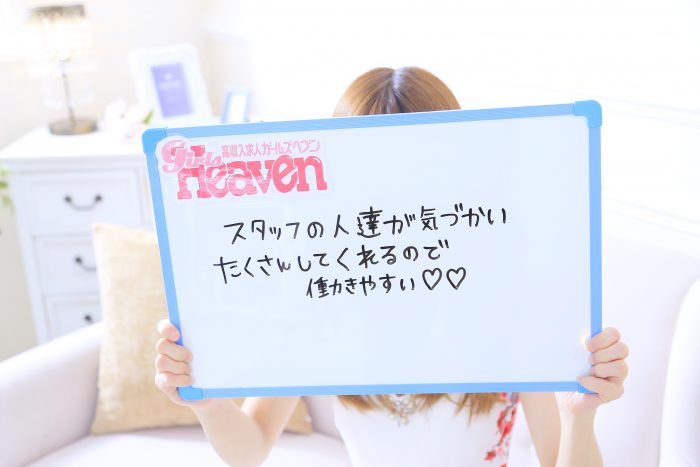 高収入求人ガールズヘブン
girls
Heaven
スタッフの人達が気づかい
たくさんしてくれるので
働きやすい♡♡